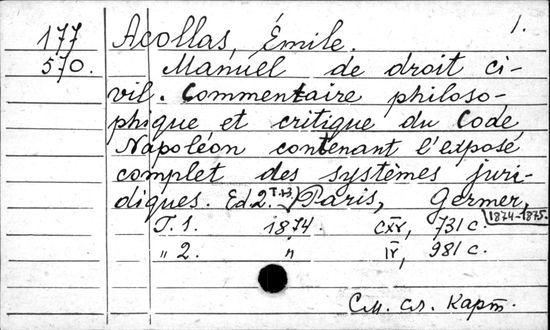 1.
177 Acollas, Émile.
570. Manuel de droit ci-
vil. Commentaire philoso-
phique et critique du Code
Napoléon contenant l'exposé
complet des systèmes juri-
diques. Ed 2. T. 1-3. Paris, Germer,
1874-1875.
T. 1. 1874. CXV, 731 c.
„ 2. „ IV, 981 c.
См. сл. карт.